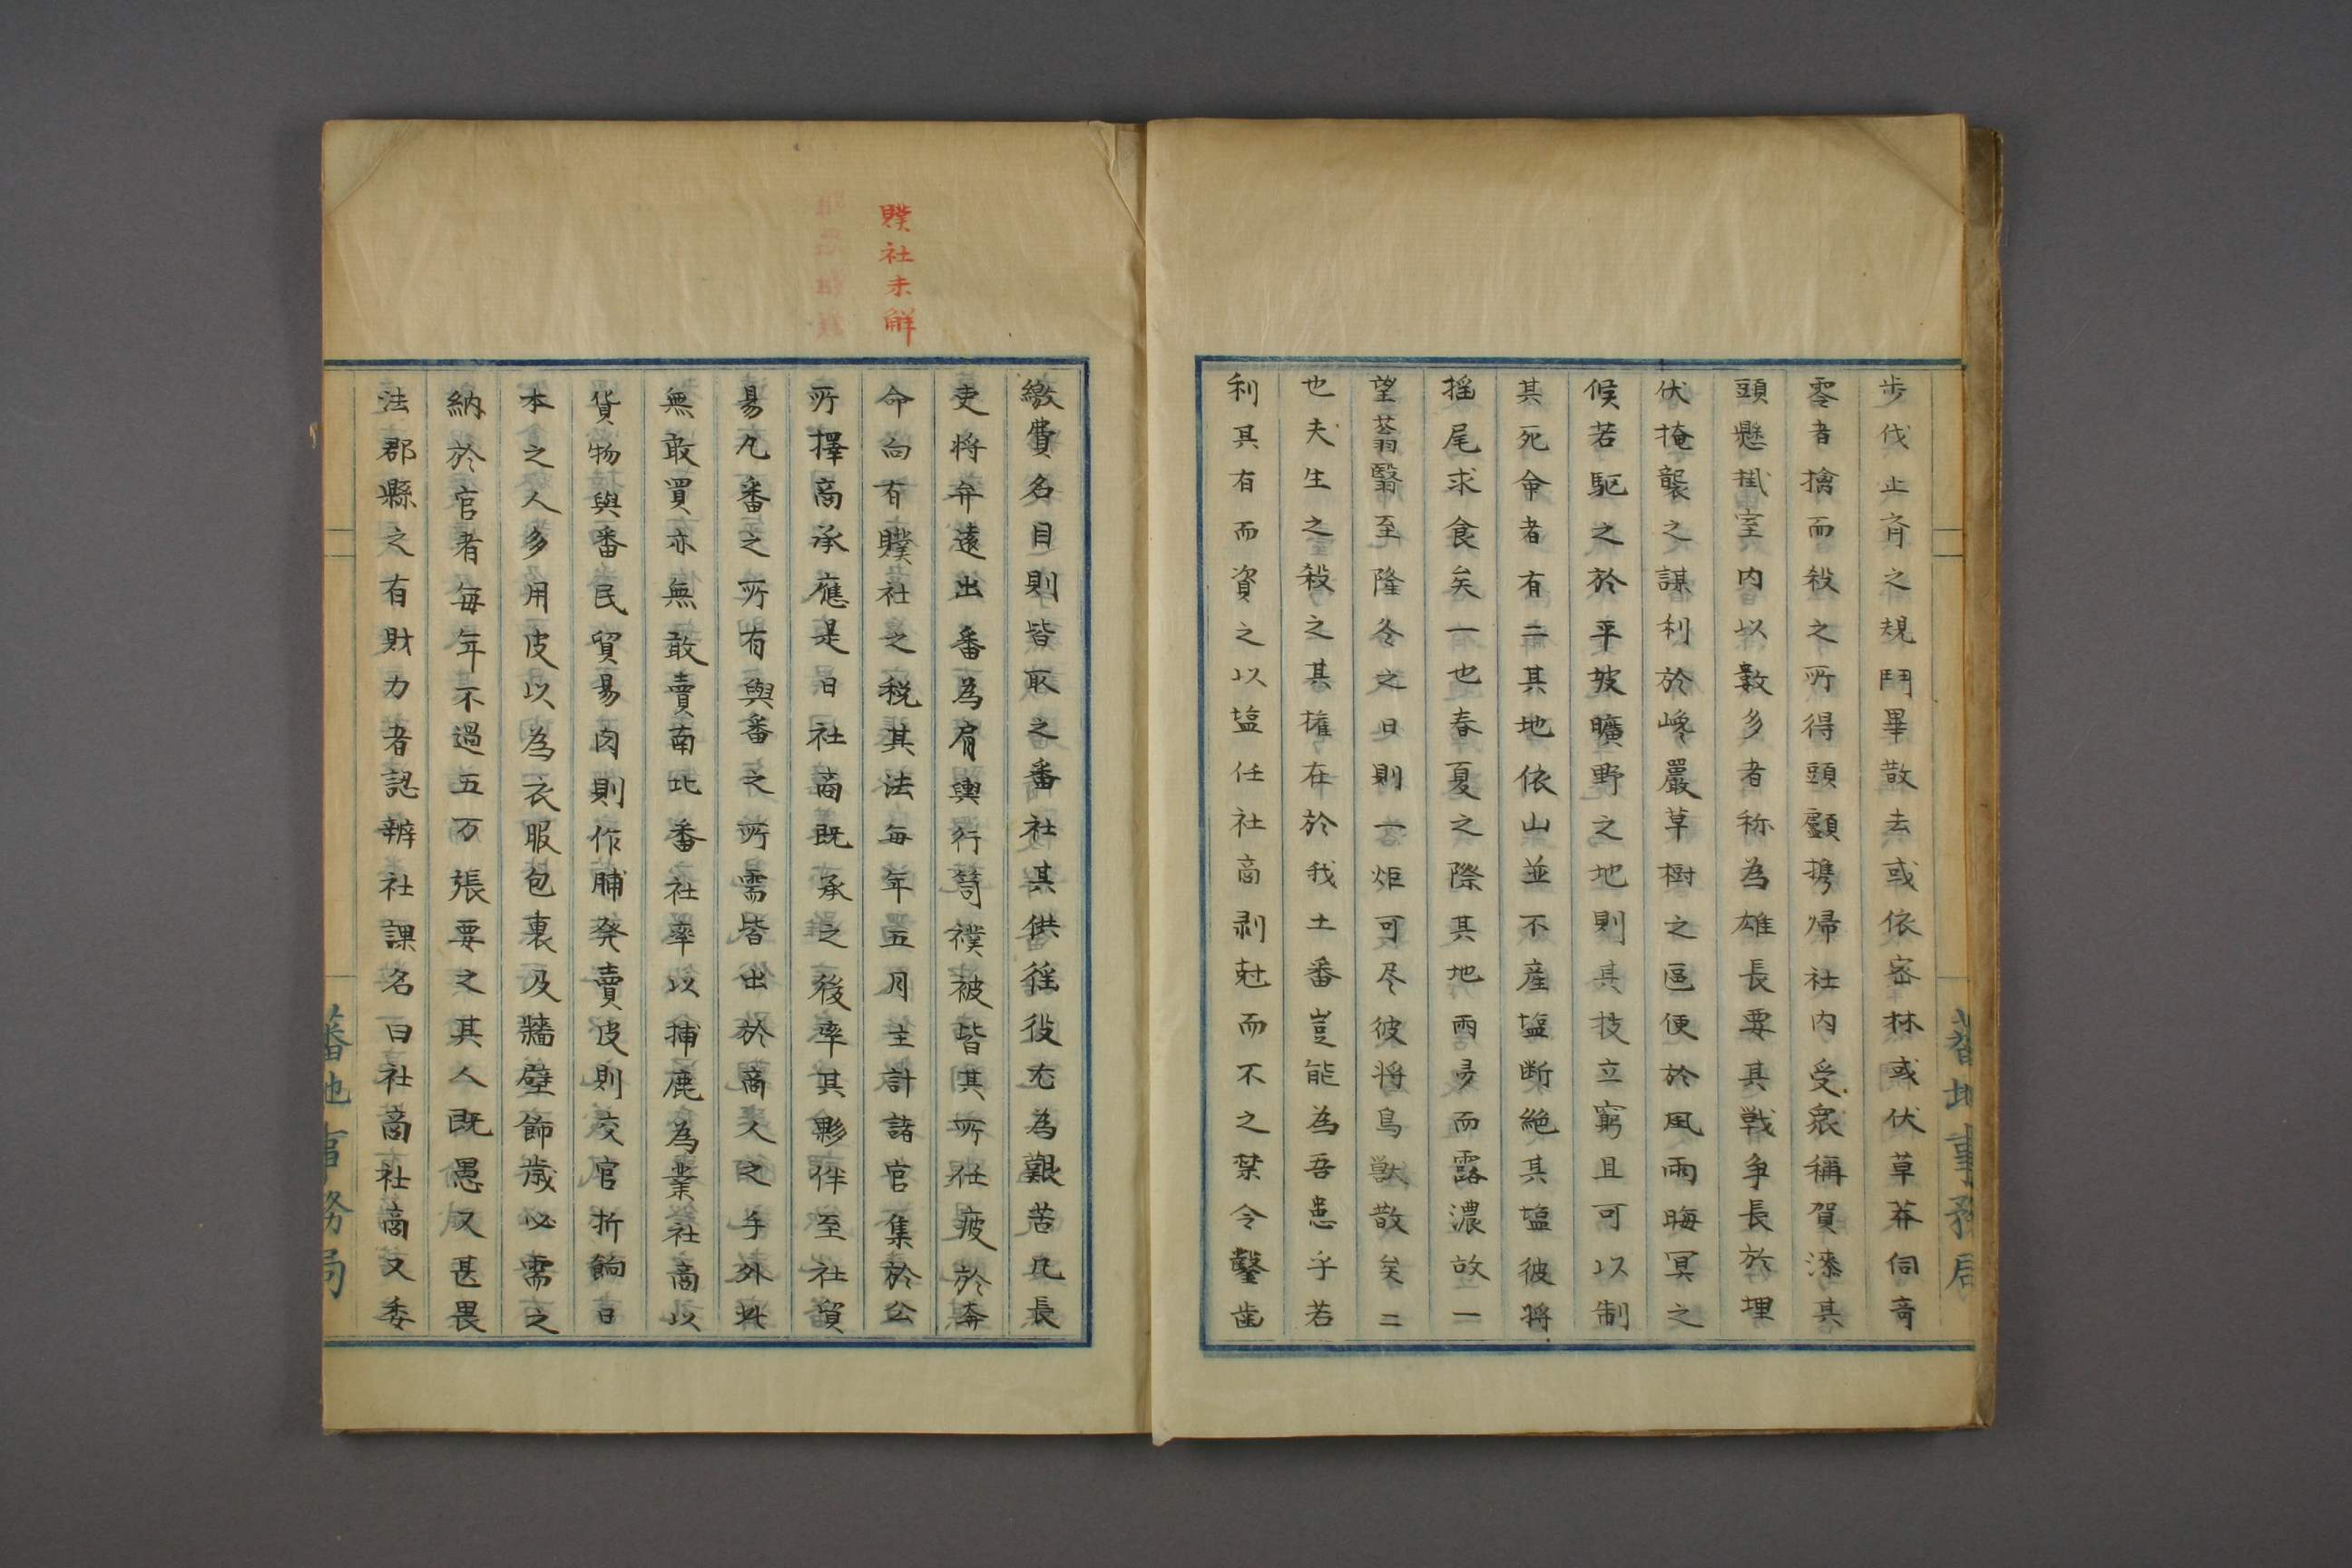 步伐止斉之規鬪畢散去或依密林或伏草莽伺奇
零者擒而殺之所得頭顱携帰社内受衆稱賀漆其
頭懸掛室内以数多者称為雄長要其戦争長於埋
伏掩襲之謀利於巉巖草樹之區便於風雨晦冥之
候若駆之於平坡曠野之地則其技立窮且可以制
其死命者有二其地依山並不産塩断絶其塩彼将
揺尾求食矣一也春夏之際其地雨多而露濃故一
望蓊翳至隆冬之日則一炬可尽彼将鳥獣散矣二
也夫生之殺之其権在於我土番豈能為吾患乎若
利其有而資之以塩任社商剥尅而不之禁令鑿歯
蕃地事務局
贌社未解
繳費名目則皆取之番社其供徭役尤為艱苦凡長
吏将弁遠出番為肩輿行笥襆被皆其所任疲於奔
命向有贌社之税其法毎年五月主計諸官集於公
所擇商承應是日社商既承之後率其夥伴至社貿
易凡番之所有與番之所需皆出於商人之手外此
無敢買亦無敢賣南北番社率以捕鹿為業社商以
貨物與番民貿易肉則作脯発賣皮則交官折餉日
本之人多用皮以為衣服包裹及牆壁飾歳必需之
納於官者毎年不過五万張要之其人既愚又甚畏
法郡縣之有財力者認辦社課名曰社商社商又委
蕃地事務局